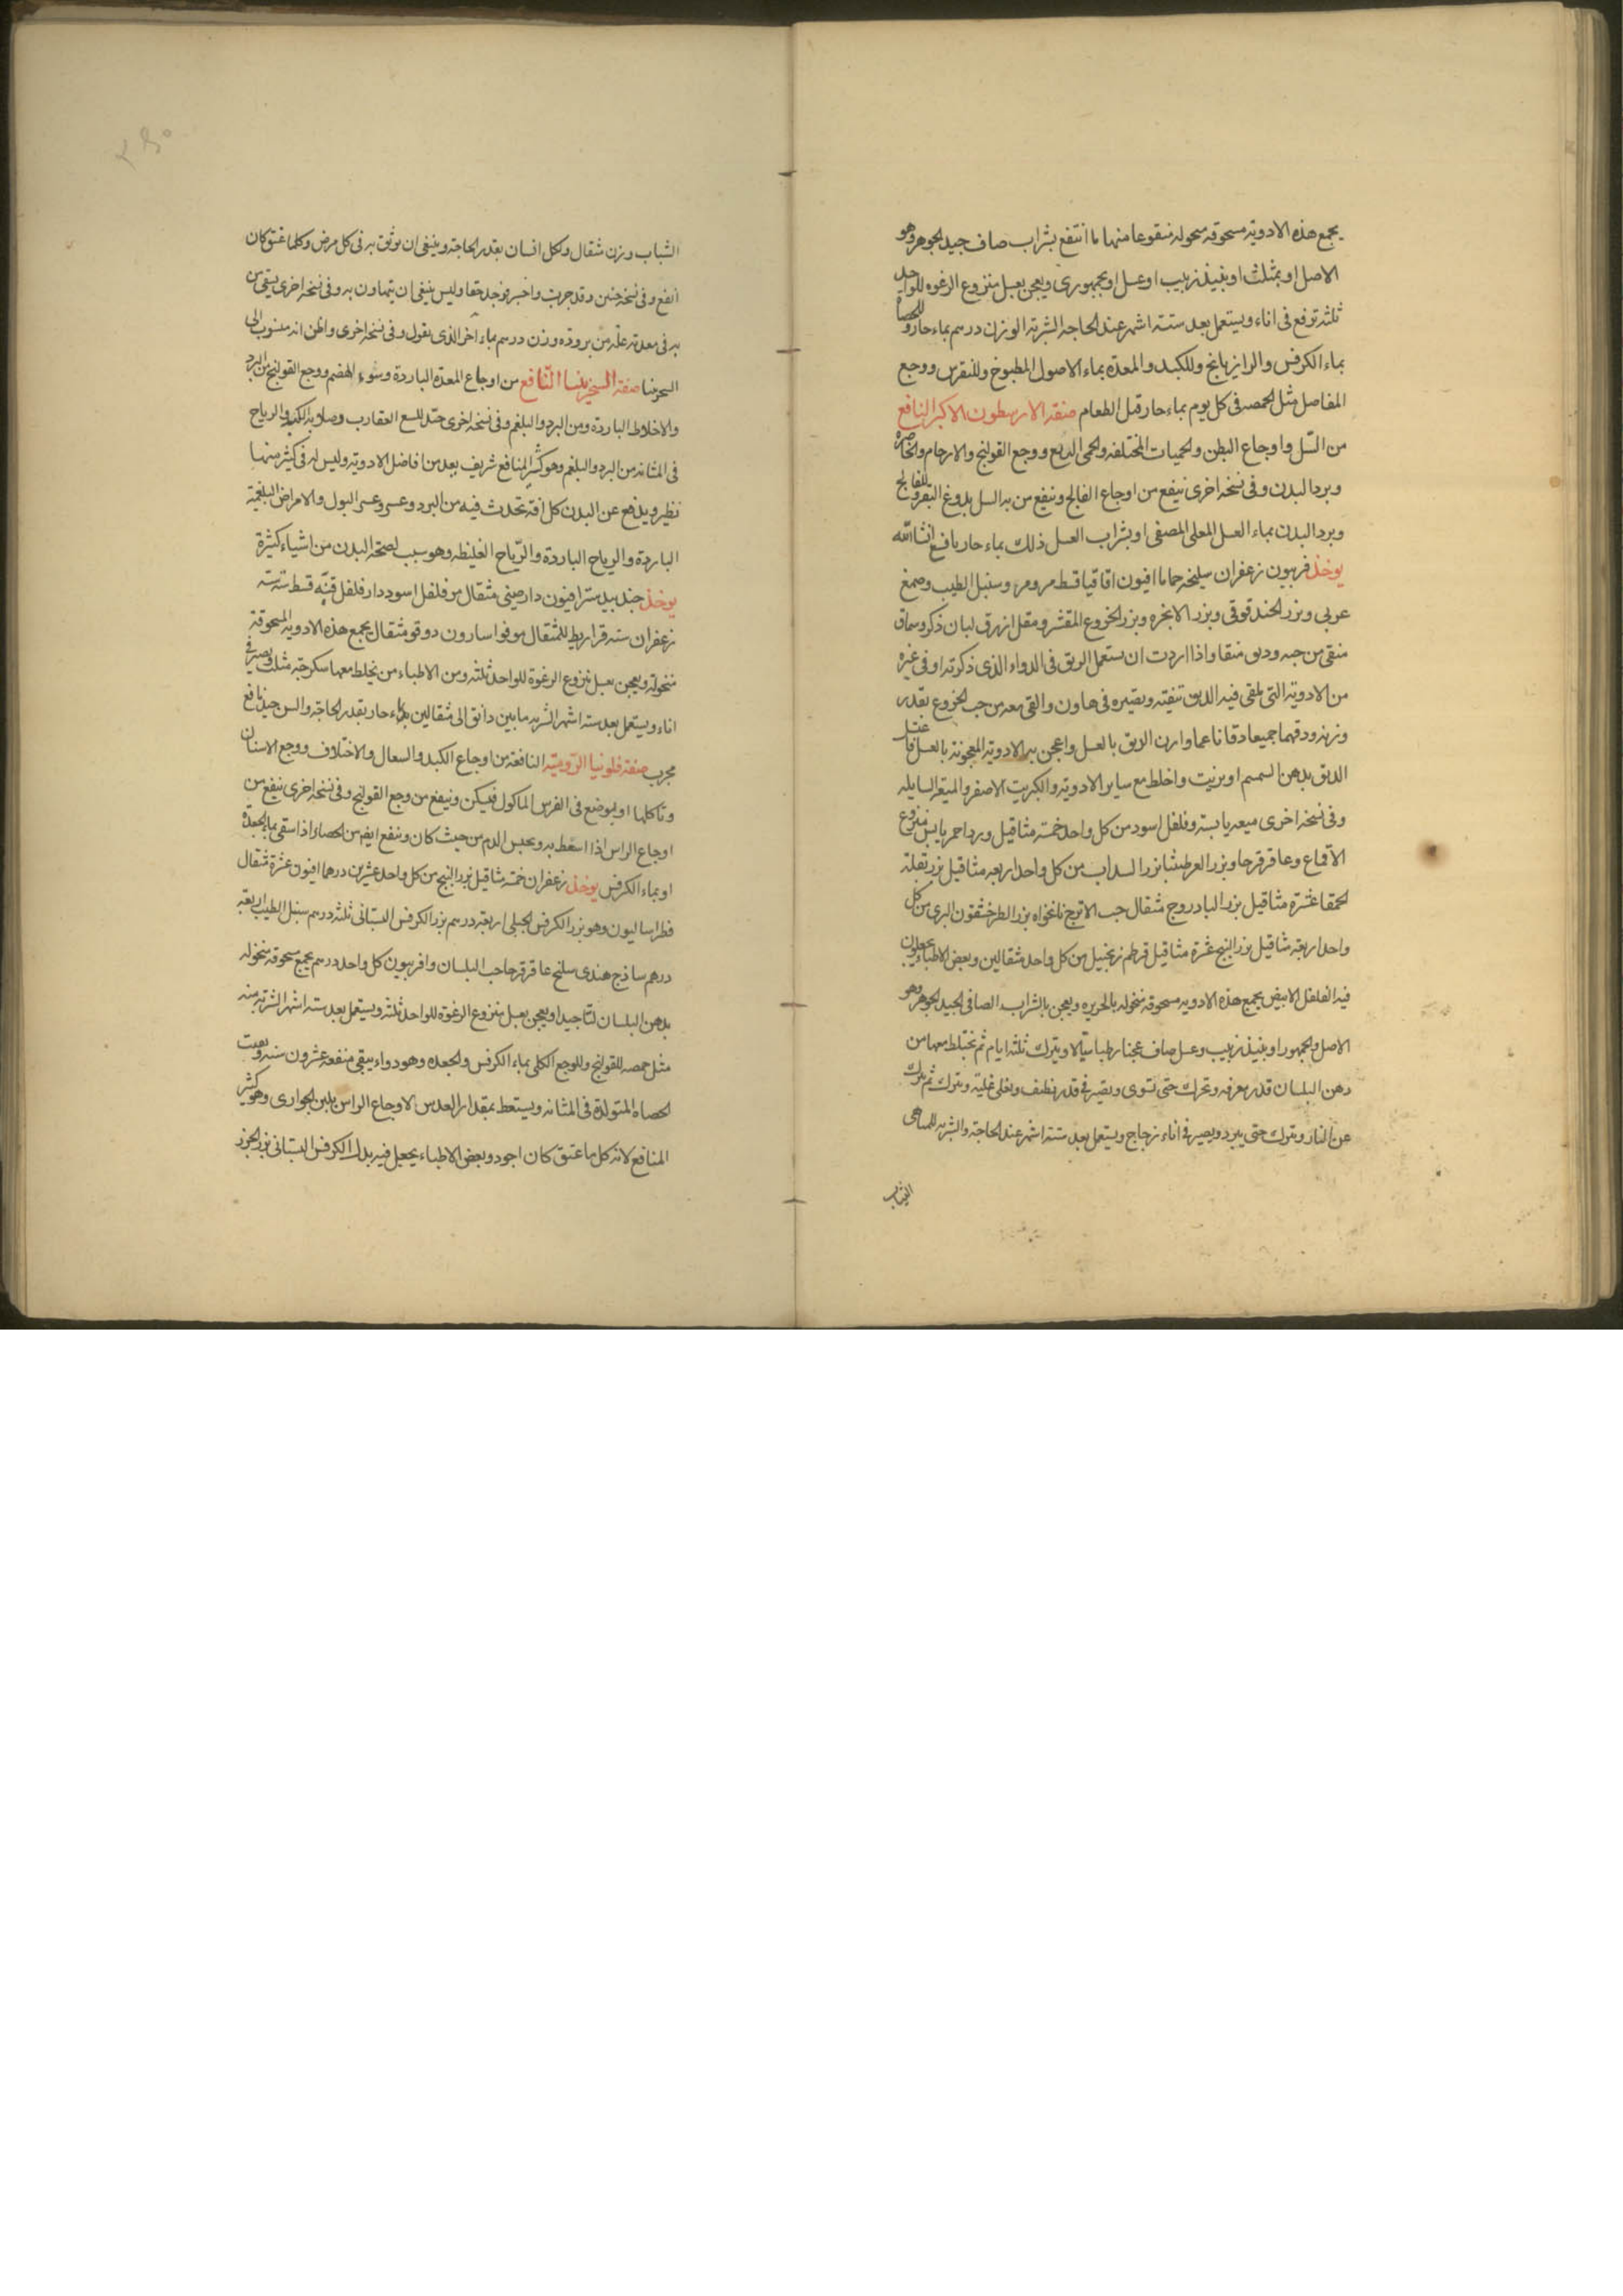 يجمع هذه الادوية مسحوقه منخوله منقوعا منها ما انتقع بشراب صاف جيد الجوهر وهو
الاصل او بمثلث او بنبيذ زبيب او عسل او بجمهورى ويعجن بعسل منزوع الرغوه للواحد
ثلثة ترفع فى اناء ويستعمل بعد ستة اشهر عند الحاجه الشربة الوزن درهم بماء حار وللحصاة
بماء الكرفس والرازيانج وللكبد والمعدة بماء الاصول المطبوخ وللنقرس ووجع
المفاصل مثل الحمصه فى كل يوم بماء حار قبل الطعام صنفة الارسطون الاكبر النافع
من السل واوجاع البطن والحميات المختلفه والحمى الربع ووجع القولنج والارحام والخاصرة
وبرد البدن وفى نسخه اخرى ينفع من اوجاع الفالج وينفع من به السل بلوغ
وبرد البدن بماء العسل المغلى المصفى او بشراب العسل ذلك بماء حار نافع انشا الله
يوخذ فربيون زعفران سليخه حماما افيون اقاقيا قسط مر ومر وسنبل الطيب وصمغ
عربى وبزر الحندقوقى وبزر الانجره وبزر الخروع المقشر ومقل ازرق لبان ذكر وسماق
منقى من حبه ودبق منقا واذا اردت ان يستعمل الدبق فى الدواء الذى ذكرته او فى غيره
من الادوية التى يلقى فيه الدبق تنقيته وتصيره فى هاون والقى معه من حب الخروع بقدر
وزنه ودقهما جميعا دقا ناعما وادن الدبق بالعسل واعجن به الادوية المعجونة بالعسل
الدبق بدهن السمسم او بزيت واخلط مع ساير الادوية والكبريت الاصفر والميعة السايله
وفى نسخه اخرى ميعه يابسة وفلفل اسود من كل واحد خمسة مثاقيل ورد احمر يابس منزوع
الاقماع وعاقرقرحا وبزر العرطنيثا بزر السداب من كل واحد اربعه مثاقيل بزر بقلة
الحمقا عشرة مثاقيل بزر البادروج مثقال حب الاترج نانخواه بزر الطرخشقون البرى من كل
واحد اربعة مثاقيل بزر البنج عشرة مثاقيل قرطم زنجبيل من كل واحد مثقالين وبعض الاطباء يجعلون
فيه الفلفل الابيض يجمع هذه الادويه مسحوقه منخوله بالحريره ويعجن بالشراب الصافى الجيد الجوهر وهو
الاصل والجمهور او بنبيذ زبيب وعسل صاف عجنا رطبا سيالا ويترك ثلثة ايام ثم يختلط معها من
دهن البلسان قدر مغرفه وتحرك حتى تسوى وتصير فى قدر نظيف ويغلى غلية ويترك ثم يترك
عن النار ويترك حتى يبرد ويصير فى اناء زجاج ويستعمل بعد ستة اشهر عند الحاجة والشربه
الشباب
الشباب وزن مثقال ولكل انسان بقدر الحاجة وينبغى ان يوثق به فى كل مرض وكلما عتق كان
انفع وفى نسخة حنين وقد جربت واختبر فوجد حقا وليس ينبغى ان يتهاون به وفى نسخه اخرى يسقى من
به فى معدته علة من بروده وزن درهم بماء اخر الذى يقول وفى نسخه اخرى واظن انه منسوب الى
السجزينا صنفة السجزينيا النافع من اوجاع المعدة الباردة وسوء الهضم ووجع القولنج من البرد
والاخلاط الباردة ومن البرد والبلغم وفى نسخه اخرى جيد للسع العقارب وصلابة الكبد والرياح
فى المثانه من البرد والبلغم وهو كثير المنافع شريف يعد من افاضل الادوية وليس له فى كثير منها
نظير ويدفع عن البدن كل افة تحدث فيه من البرد وعسر وعسر البول والامراض البلغمية
الباردة والرياح الباردة والرّياح الغليظه وهو سبب لصحة البدن من اشياء كثيرة
يوخذ جندبيدستر افيون دارصينى مثقال مو فلفل اسود دارفلفل قنّه قسط ستة ستة
زعفران ستة قراريط للمثقال مو فوا سارون دوقو مثقال يجمع هذه الادويه المسحوقه
منخوله ويعجن بعسل منزوع الرغوة للواحد ثلثة ومن الاطباء من يخلط معها سكرجة مثلث ويصير فى
اناء ويستعمل بعد ستة اشهر الشربه ما بين دانق الى مثقالين بماء حار بقدر الحاجة والسن جيد نافع
مجرب صنفة فلونيا الرّوميّة النافعة من اوجاع الكبد والسعال والاختلاف ووجع الاسنان
وتاكلها او يوضع فى الضرس الماكول فيسكن وينفع من وجع القولنج وفى نسخه اخرى ينفع من
اوجاع الراس اذا اسعط به ويحبس الدم من حيث كان وينفع ايض من الحصاة اذا سقى بماء الجعدة
او بماء الكرفس يوخذ زعفران خمسة مثاقيل بزر البنج من كل واحد عشرين درهما افيون عشرة مثقال
فطراساليون وهو بزر الكرفس الجبلى اربعة درهم بزر الكرفس البستانى ثلثه درهم سنبل الطيب اربعة
درهم ساذج هندى سليخ عاقرقرحا حب البلسان وافربيون كل واحد درهم يجمع مسحوقه منخوله
بدهن البلسان لتا جيدا ويعجن بعسل منزوع الرغوة للواحد ثلثة ويستعمل بعد ستة اشهر الشربة منه
مثل حمصه للقولنج وللوجع الكلى بماء الكرفس والجعده وهو دواء يبقى منفعه عشرون سنه
الحصاه المتولدة فى المثانه ويستعط بمقدار العدس لاوجاع الراس بلبن الجوارى وهو كثير
المنافع لانه كل ما عتق كان اجود وبعض الاطباء يجعل فيه بدل الكرفس البستانى بزر الجزر